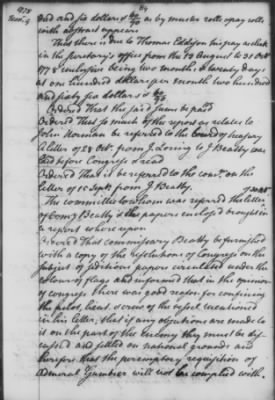 1778
Nov. 9
89
dred and six dollars 6/90 as by muster rolls & pay rolls
with abstract appears
That there is due to Thomas Edison his pay as clerk
in the secretary's office from the 19 August to 31 Oct
1778 inclusive being two months & twenty days
at one hundred dollars per month two hundred
and sixty six dollars 60/90
Ordered That the said sums be paid
Ordered That so much of the report as relates to
John Norman be referred to the board of treasury
A letter of 28 Oct. from J. Loring to J Beatty was
laid before Congress & read
Ordered That it be referred to the comee. on the
letter of 15 Septr. from J. Beatty.
The committee to whom was referred the letter
of Comy Beatty & the papers enclosed brought in
a report whereupon
Ordered That commissary Beatty be furnished
with a copy of the resolutions of Congress on the
subject of seditious papers circulated under the
colour of flags and informed that in the opinion
of congress there was good reason for confining
the pilot, lieut. & crew of the vessel mentioned
in his letter, that if any objections are made to
it on the part of the enemy they must be dis
cussed and settled on national grounds and
therefore that the peremptory requisition of
Admiral Gambier will not be complied with.